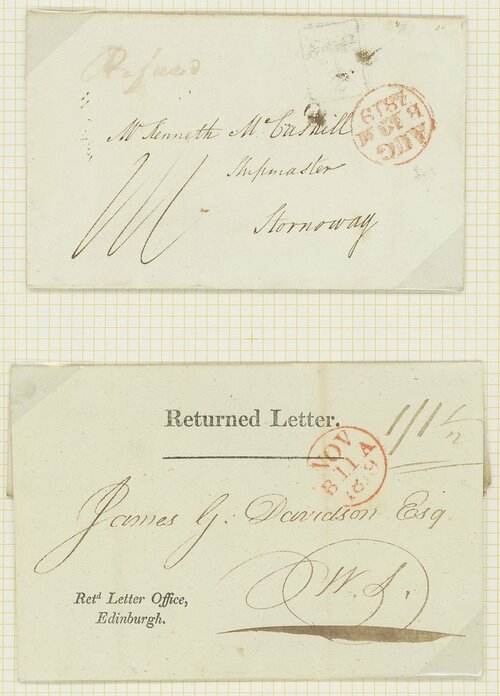 Refused
AUG
B 13 M
1819
Mr Kenneth McCaskill
Shipmaster
Stornoway
Returned Letter.
1/1 1/2
NOV
B 11 A
1819
James G. Davidson Esq
W. S.
Retd Letter Office,
Edinburgh.